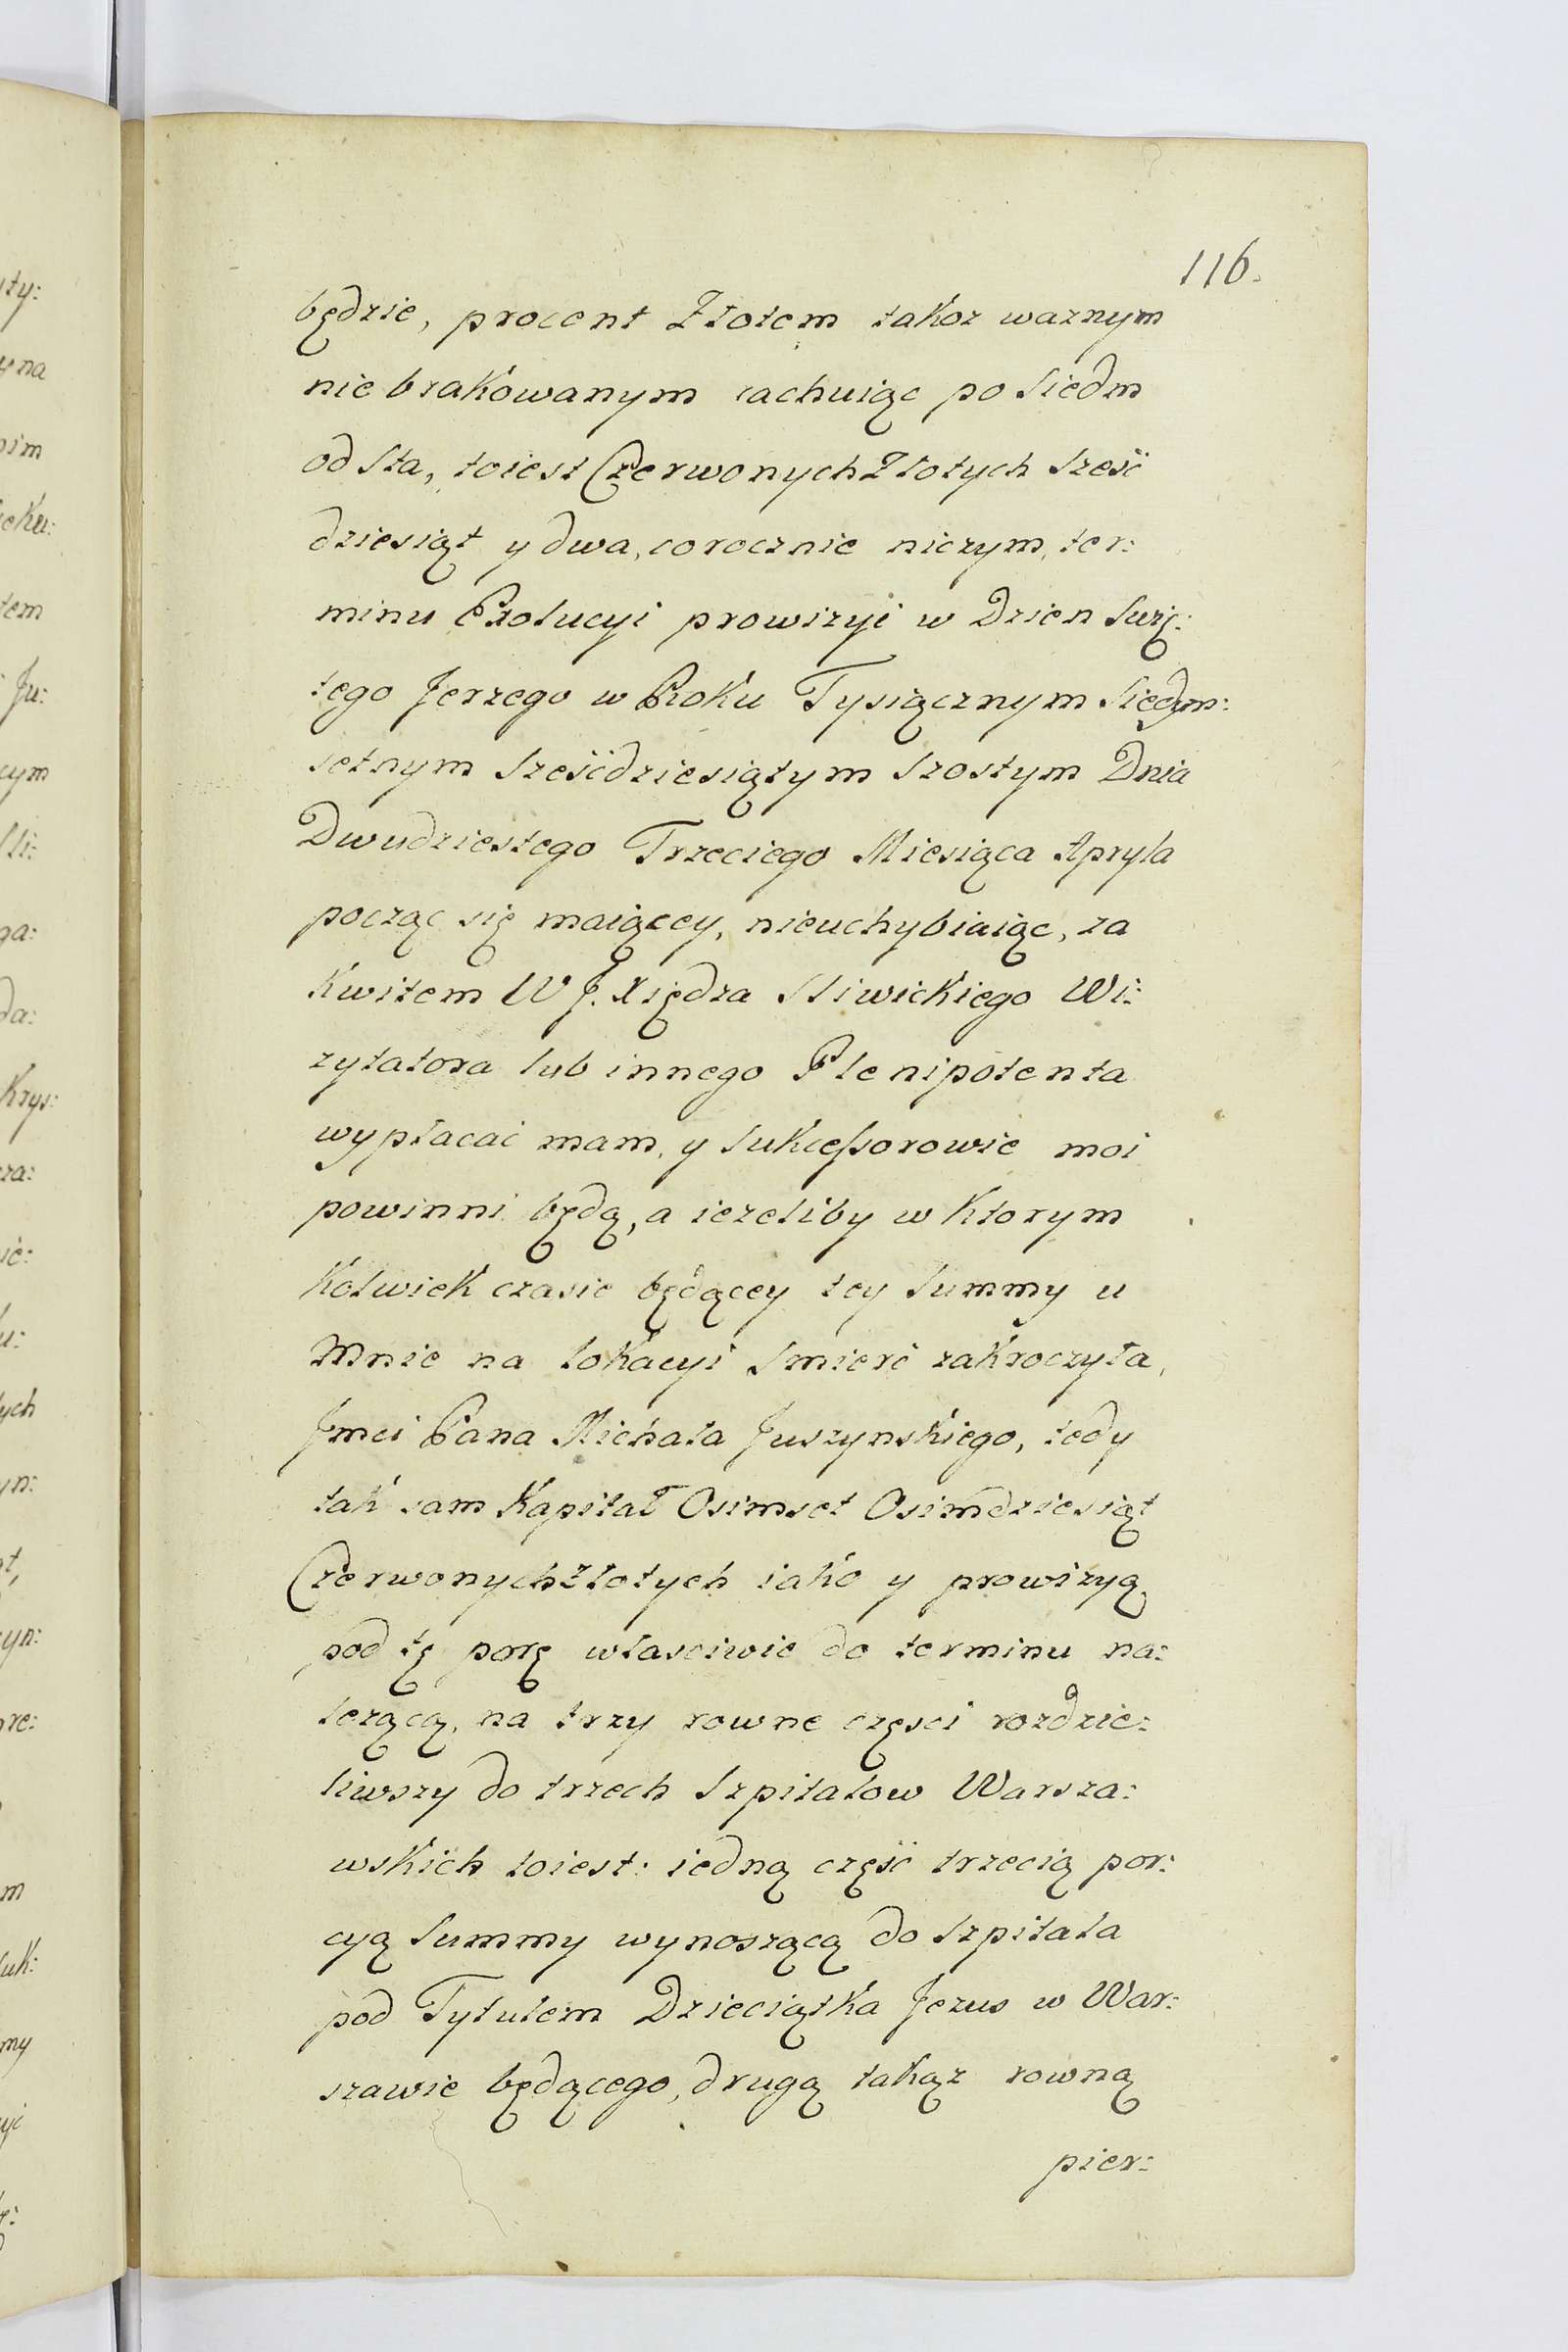 116.
będzie, procent Złotem takoz waznym
nie brakowanym rachuiąc po Siedm
od Sta, toiest Czerwonych Złotych Sześć
dziesiąt y dwa, corocznie niczym, ter:
minu Exolucyi prowizyi w Dzien Swię:
tego Jerzego w Roku Tysiącznym Siedym:
setnym Sześćdziesiątym Szostym Dnia
Dwudziestego Trzeciego Miesiąca Apryla
począc się maiącey, nieuchybiaiąc, za
Kwitem W J. Xiędza Sliwickiego Wi:
zytatora lub innego Plenipotenta
wypłacać mam, y Sukcessorowie moi
powinni będą, a iezeliby w Ktorym
Kolwiek czasie będącey tey Summy u
Mnie na lokacyi Smierć zakroczyła,
Jmci Pana Michała Juszynskiego, tedy
tak sam Kapitał Osimset Osimdziesiąt
Czerwonych Złotych iako y prowizyą,
pod tę porę własciwie do terminu na:
lezącą, na trzy rowne częsci rozdzie:
liwszy do trzech Szpitalow Warsza:
wskich toiest: iedną część trzecią por:
cyą Summy wynoszącą do Szpitala
pod Tytulem Dzieciątka Jezus w War:
szawie będącego, drugą takąz rowną
pier:
ty:
na
im
tem
Ju:
cym
ga:
da:
Krys:
za:
ie:
u:
ych
yn:
t,
yn:
re:
m
uk:
my
yi